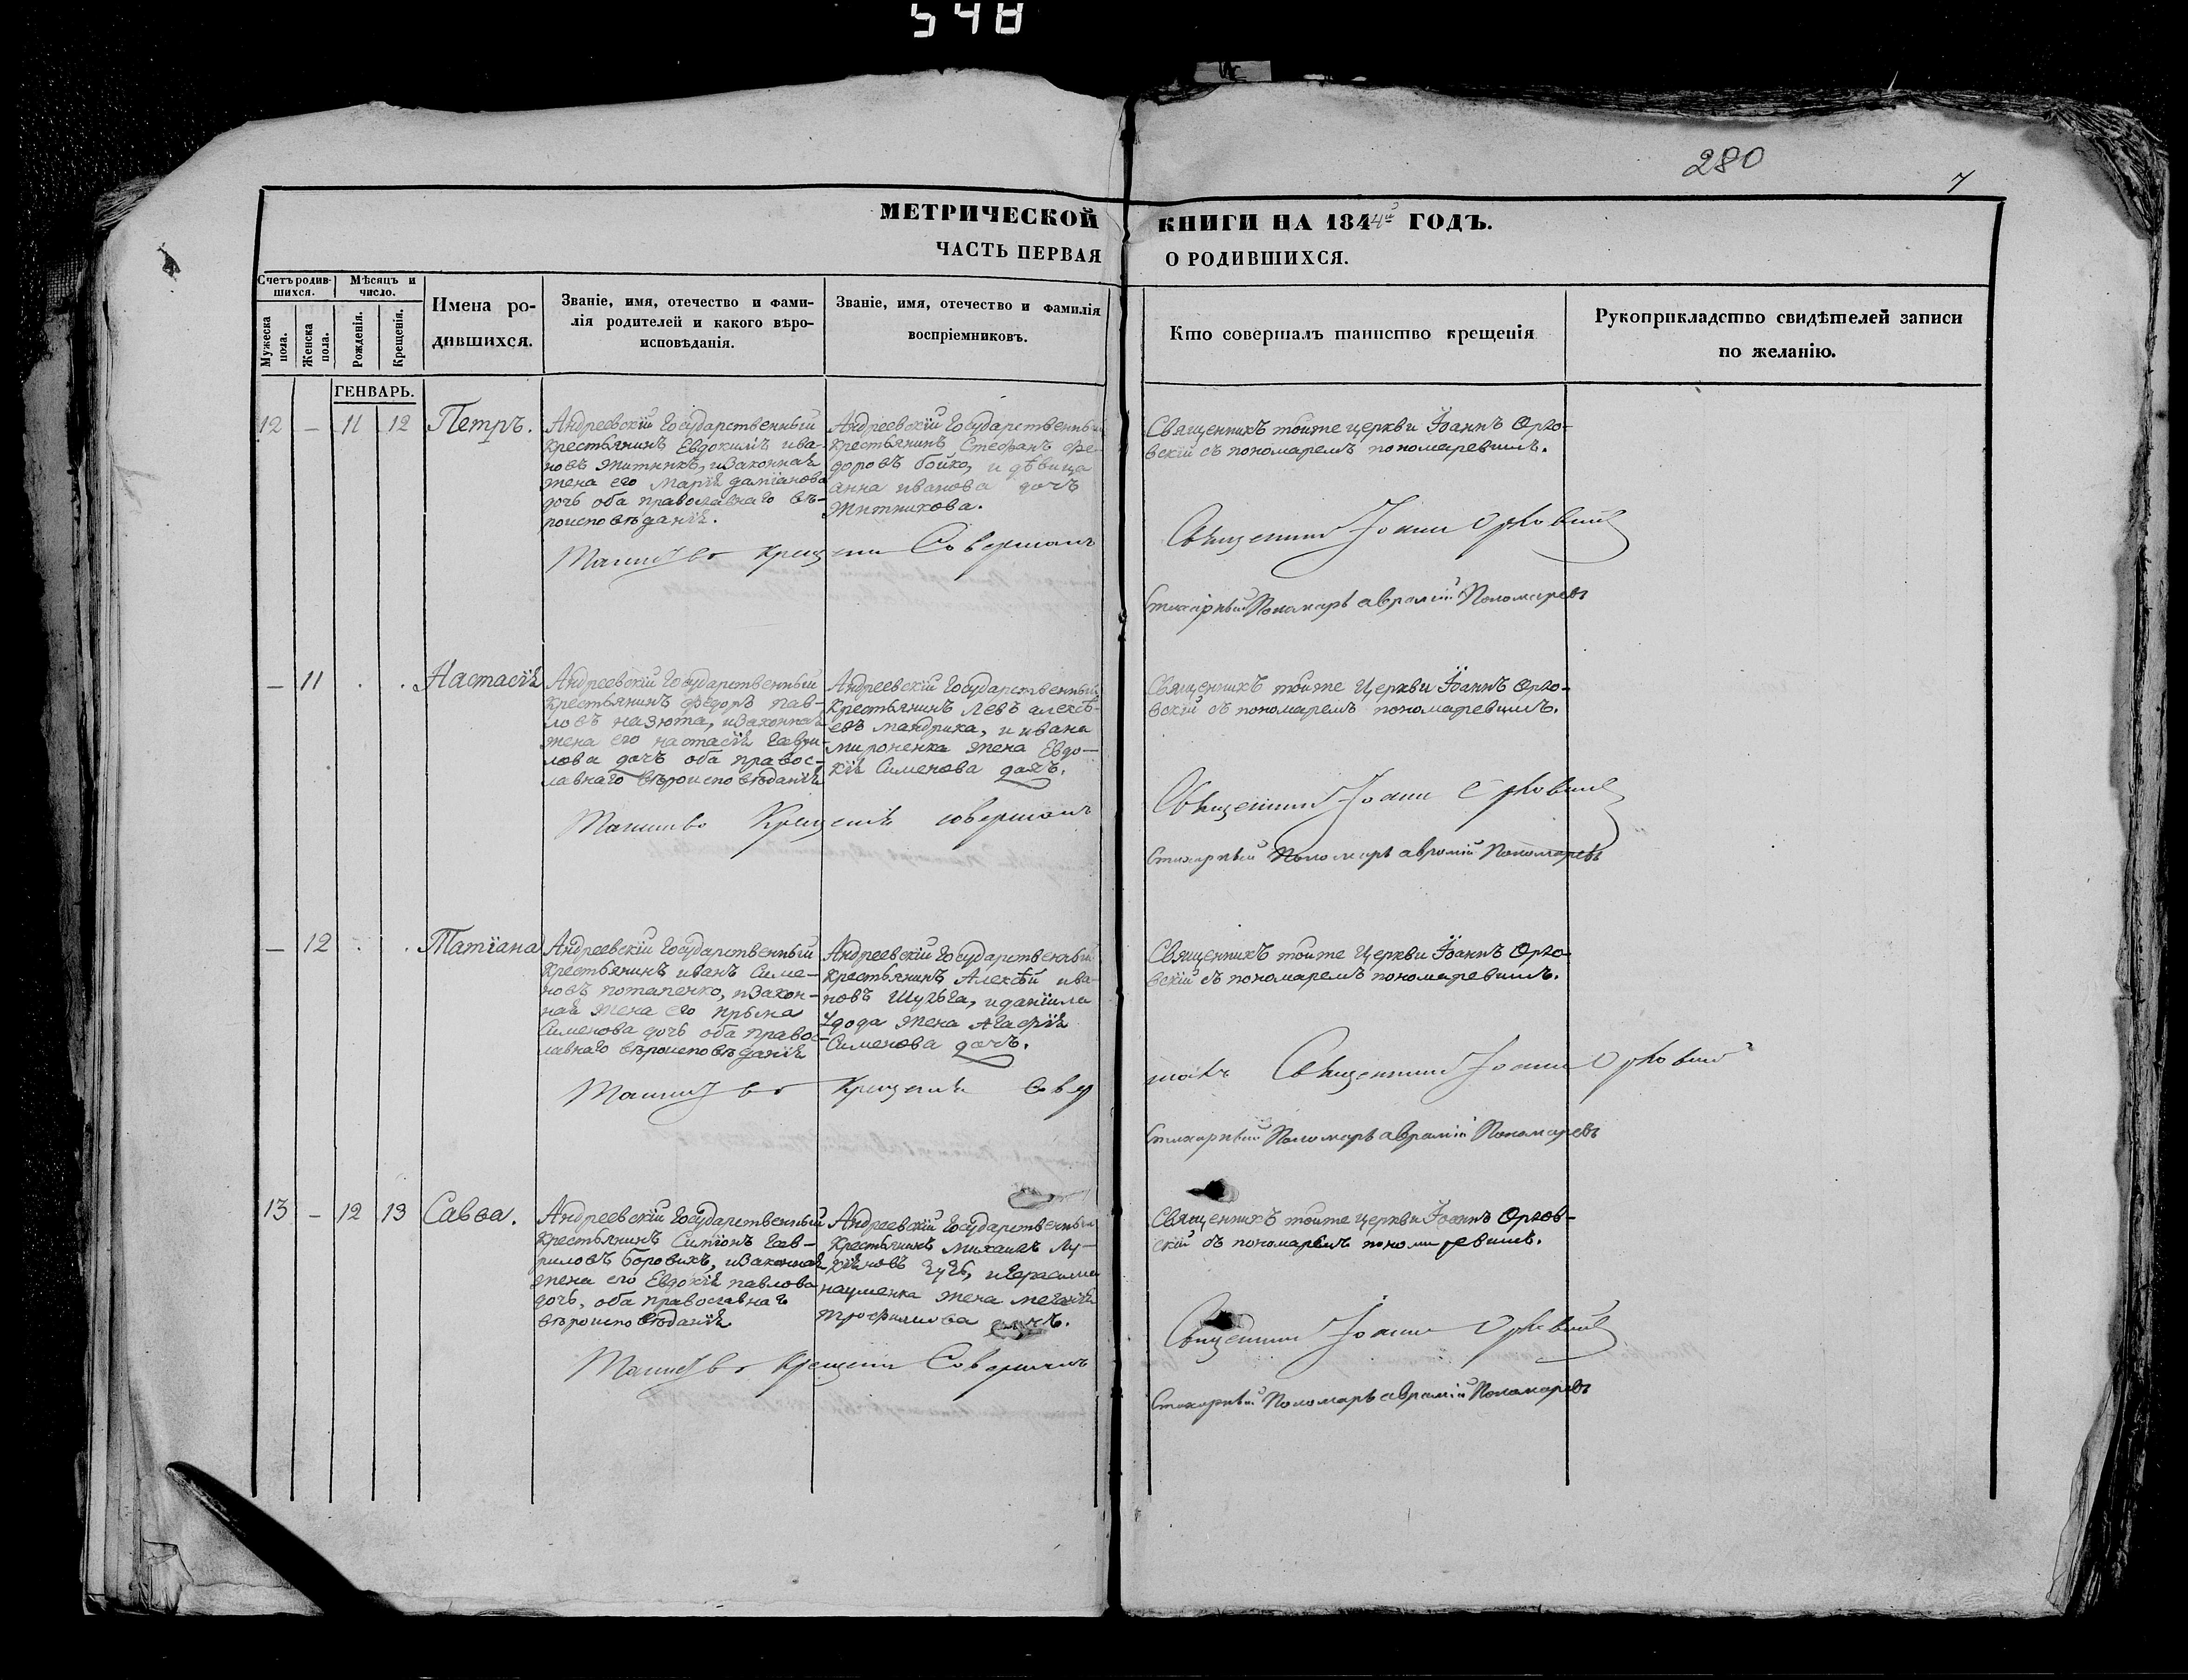 548
280
7
МЕТРИЧЕСКОЙ КНИГИ НА 1844й ГОДЪ.
ЧАСТЬ ПЕРВАЯ О РОДИВШИХСЯ.
Счетъ родив-
шихся.
Мѣсяцъ и
число.
Мужеска
пола.
Женска
пола.
Рожденія.
Крещенія.
Имена ро-
дившихся.
Званіе, имя, отечество и фами-
лія родителей и какого вѣро-
исповѣданія.
Званіе, имя, отечество и фамилія
воспріемниковъ.
Кто совершалъ таинство крещенія
Рукоприкладство свидѣтелей записи
по желанію.
ГЕНВАРЬ.
12 — 11 12 Петръ.
Андреевскій Государственный
крестьянинъ Евдокимъ ива-
новъ житникъ, изаконная
жена его Марія даміанова
дочь оба православнаго вѣ-
роисповѣданія.
Андреевскій Государственный
крестьянинъ Стефанъ фе-
доровъ бойко, и дѣвица
анна иванова дочь
Житникова.
Священникъ тойже церкви Іоаннъ Орло-
вскій съ пономаремъ пономаревимъ.
Таинство крещения Совершалъ Священникъ Іоаннъ Орловский
Стихарный Пономарь аврамий Пономаревъ
— 11 . . Настасія
Андреевскій Государственный
крестьянинъ федоръ пав-
ловъ назюта, изаконная
жена его настасія гаври-
лова дочь оба правос-
лавнаго вѣроисповѣданія
Андреевскій Государственный
крестьянинъ Левъ алексѣ-
евъ мандрика, и ивана
мироненка жена Евдо-
кія Сименова дочь.
Священникъ тойже Церкви Іоаннъ Орло-
вскій съ пономаремъ пономаревимъ.
Таинство Крещенія совершалъ Священникъ Іоаннъ Орловский
Стихарный Пономарь аврамій Пономаревъ
— 12 . . Татіана
Андреевскій Государственный
крестьянинъ иванъ Симе-
новъ потапенко, изакон-
ная жена его ирына
Сименова дочь оба правос-
лавнаго вѣроисповѣданія
Андреевскій Государственный
крестьянинъ Алексѣй ива-
новъ Шульга, иданіила
Удода жена Агафія
Сименова дочь.
Священникъ тойже Церкви Іоаннъ Орло-
вскій съ пономаремъ пономаревимъ.
Таинство Крещения Совер шалъ Священникъ Іоаннъ Орловский
Стихарный Пономарь аврамій Пономаревъ
13 — 12 13 Савва.
Андреевскій Государственный
крестьянинъ Симіонъ Гав-
риловъ боровикъ, изаконная
жена его Евдокія павлова
дочь, оба православнаг
вѣроисповѣданія
Андреевскій Государственный
крестьянинъ михаилъ Лу-
кіяновъ иГерасима
науменка жена меланія
трофимова дочь.
Священникъ тойже церкви Іоаннъ Орлов-
скій съ пономаремъ пономаревимъ.
Таинство Крещения Совершалъ Священникъ Іоаннъ Орловский
Стихарный Пономарь аврамий Пономаревъ